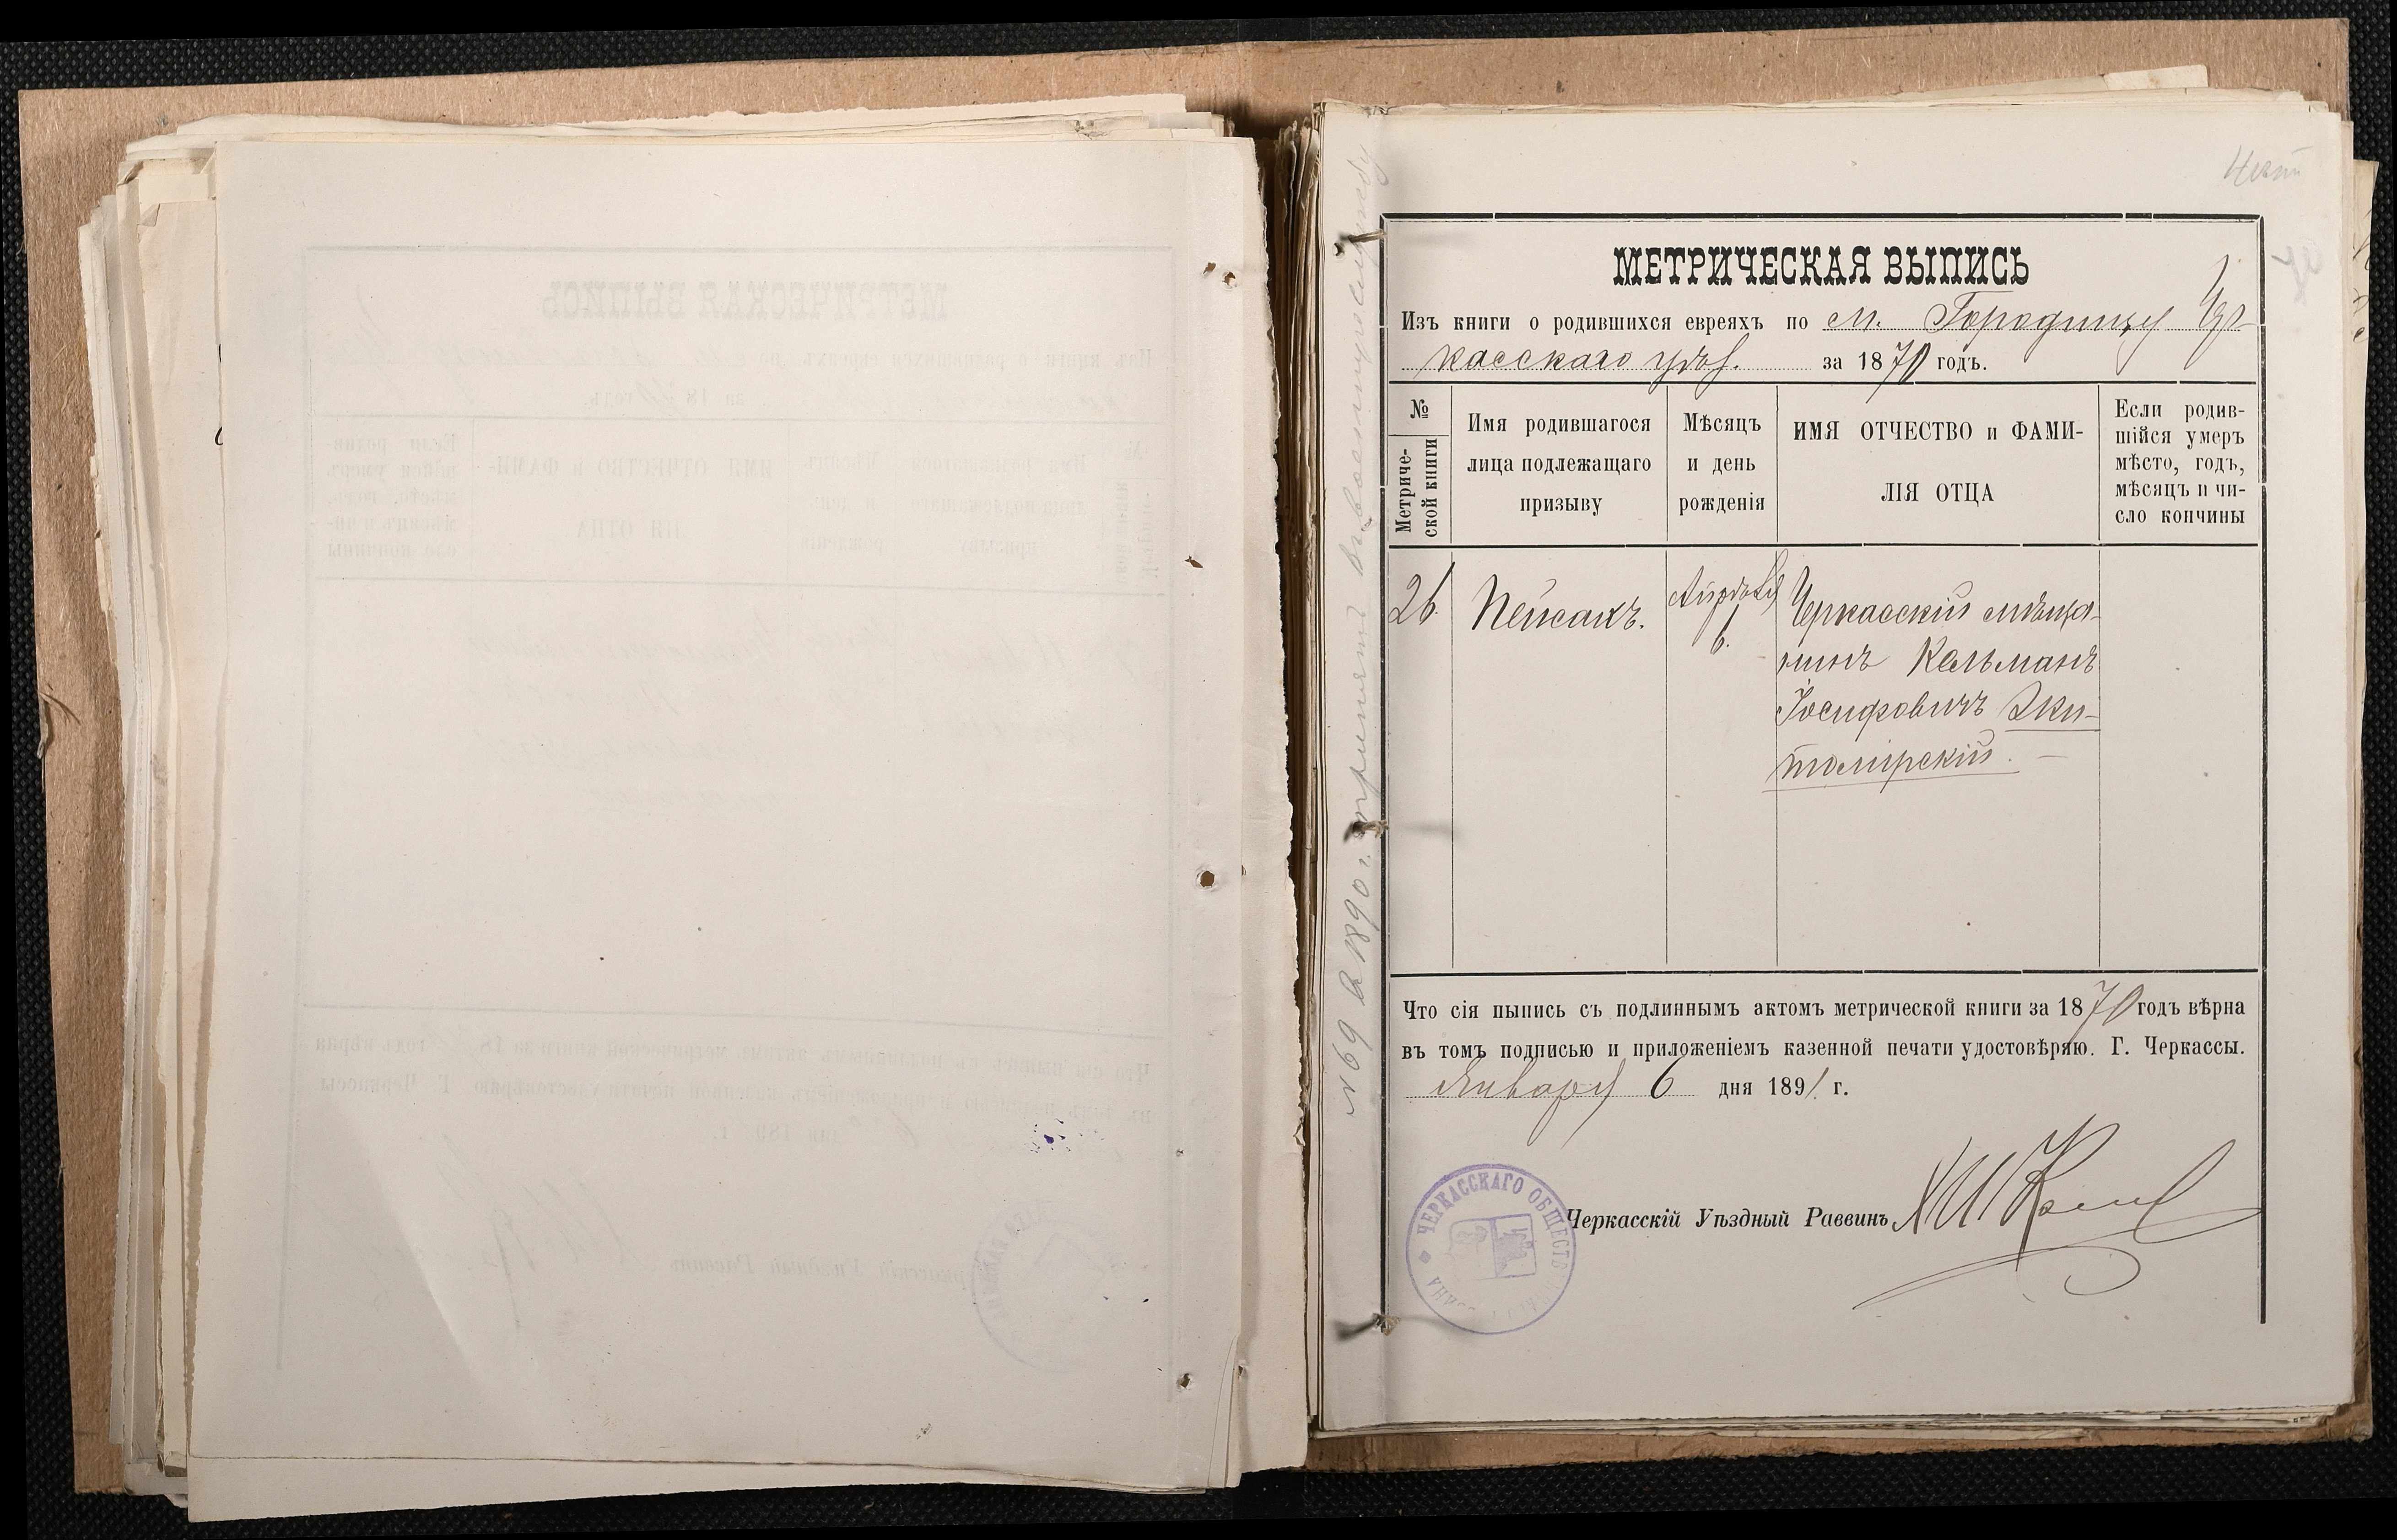 МЕТРИЧЕСКАЯ ВЫПИСЬ
Изъ книги о родившихся евреяхъ по м. Городищу Чер-
касскаго уѣз. за 1870 годъ.
№
Метриче-
ской книги
Имя родившагося
лица подлежащаго
призыву
Мѣсяцъ
и день
рожденія
ИМЯ ОТЧЕСТВО и ФАМИ-
ЛІЯ ОТЦА
Если родив-
шійся умеръ
мѣсто, годъ,
мѣсяцъ и чи-
сло кончины
26.
Пейсахъ.
Апрѣля
6.
Черкасскій мѣща-
нинъ Кальманъ
Іосифовичъ Жи-
томірскій. —
Что сія пыпись съ подлиннымъ актомъ метрической книги за 1870 годъ вѣрна
въ томъ подписью и приложеніемъ казенной печати удостовѣряю. Г. Черкассы.
Января 6 дня 1891 г.
Черкасскій Уѣздный Раввинъ
ЧЕРКАССКАГО ОБЩЕСТВ
№69 в 1890 г. принятъ въ